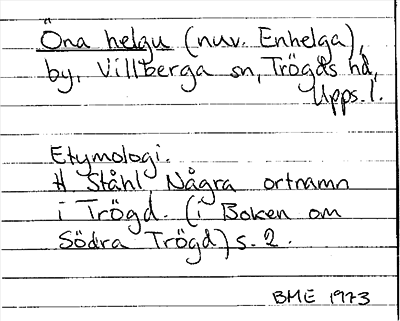 Öna helgu (nuv. Enhelga),
by, Villberga sn, Trögds hd,
Upps. l.
Etymologi.
H. Ståhl, Några ortnamn
i Trögd. (i Boken om
Södra Trögd) s. 2.
BME 1973